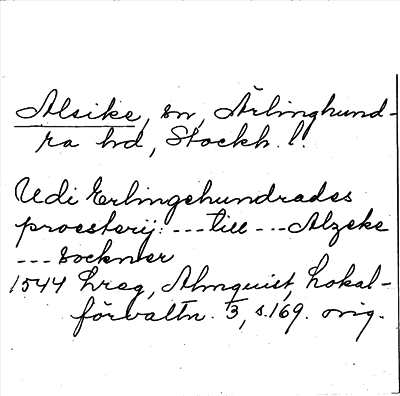 Alsike, sn, Ärlinghund-
ra hd, Stockh. l.
Udi Erlingehundrades
proesterij: --- till --- Alzeke
--- Socknner
1544 hreg, Almquist, Lokal-
förvaltn. 3, s.169. orig.